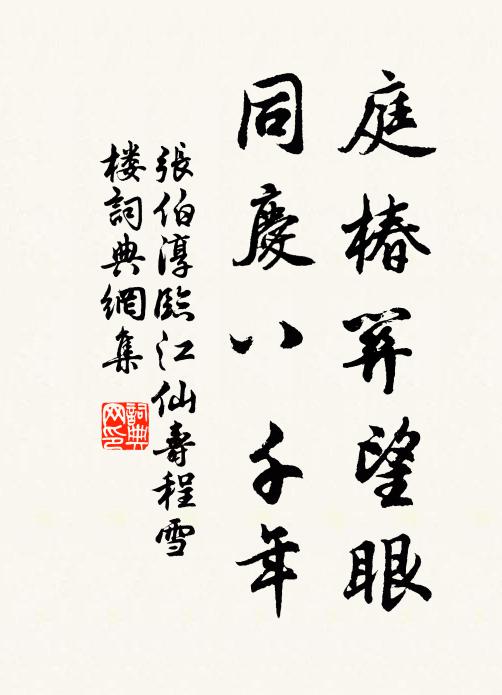 庭椿開望眼
同慶八千年
張伯淳臨江仙壽程雪
楼詞典網集
詞典
网印